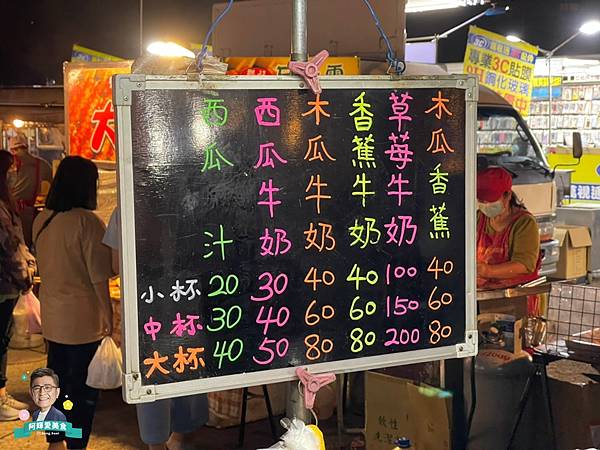 西瓜汁
西瓜牛奶
木瓜牛奶
香蕉牛奶
草莓牛奶
木瓜香蕉
小杯 20 30 40 40 100 40
中杯 30 40 60 60 150 60
大杯 40 50 80 80 200 80
專業3C貼膜
鋼化玻璃
大
軟性
阿輝愛美食